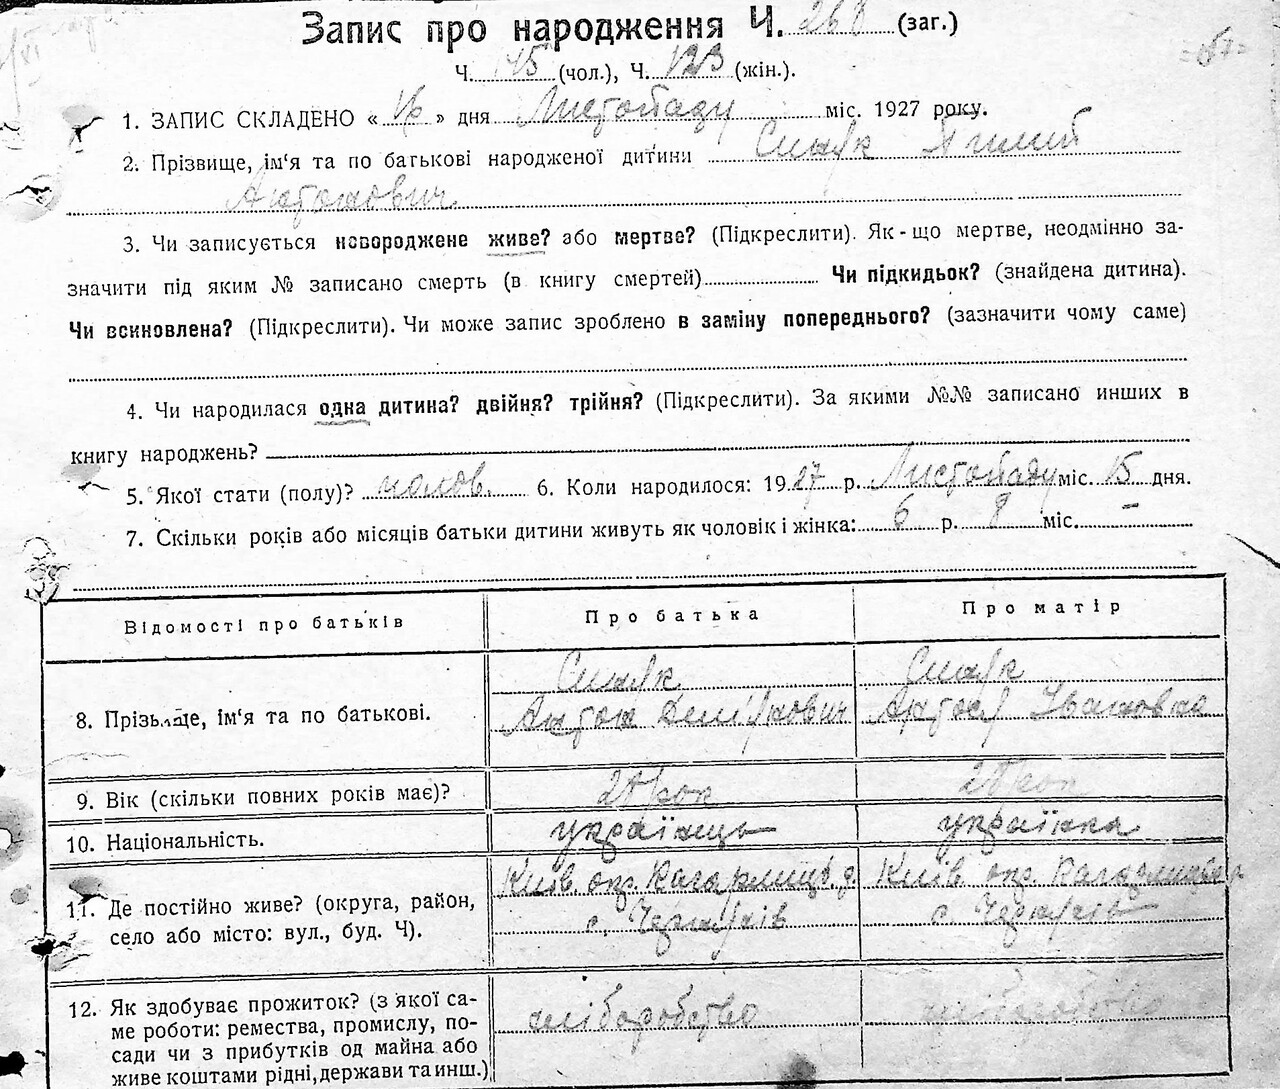 Запис про народження Ч. 268 (заг.)
Ч. 145 (чол.), Ч. 123 (жін.).
1. ЗАПИС СКЛАДЕНО « » дня Листопаду міс. 1927 року.
2. Прізвище, ім'я та по батькові народженої дитини
Антонович
3. Чи записується новороджене живе? або мертве? (Підкреслити). Як-що мертве, неодмінно за-
значити під яким № записано смерть (в книгу смертей) Чи підкидьок? (знайдена дитина).
Чи всиновлена? (Підкреслити). Чи може запис зроблено в заміну попереднього? (зазначити чому саме)
4. Чи народилася одна дитина? двійня? трійня? (Підкреслити). За якими №№ записано инших в
книгу народжень?
5. Якої стати (полу)? чолов. 6. Коли народилося: 1927 р. Листопаду міс. 15 дня.
7. Скільки років або місяців батьки дитини живуть як чоловік і жінка: 6 р. 8 міс. –
Відомості про батьків Про батька Про матір
8. Прізвище, ім'я та по батькові.
Антон Івановна
9. Вік (скільки повних років має)?
10. Національність. українець українка
11. Де постійно живе? (округа, район, Київ. окр. Кагарлицьк. р. Київ. окр. Кагарлицьк. р.
село або місто: вул., буд. Ч). с. с.
12. Як здобуває прожиток? (з якої са- хліборобство хліборобство
ме роботи: ремества, промислу, по-
сади чи з прибутків од майна або
живе коштами рідні, держави та инш.)